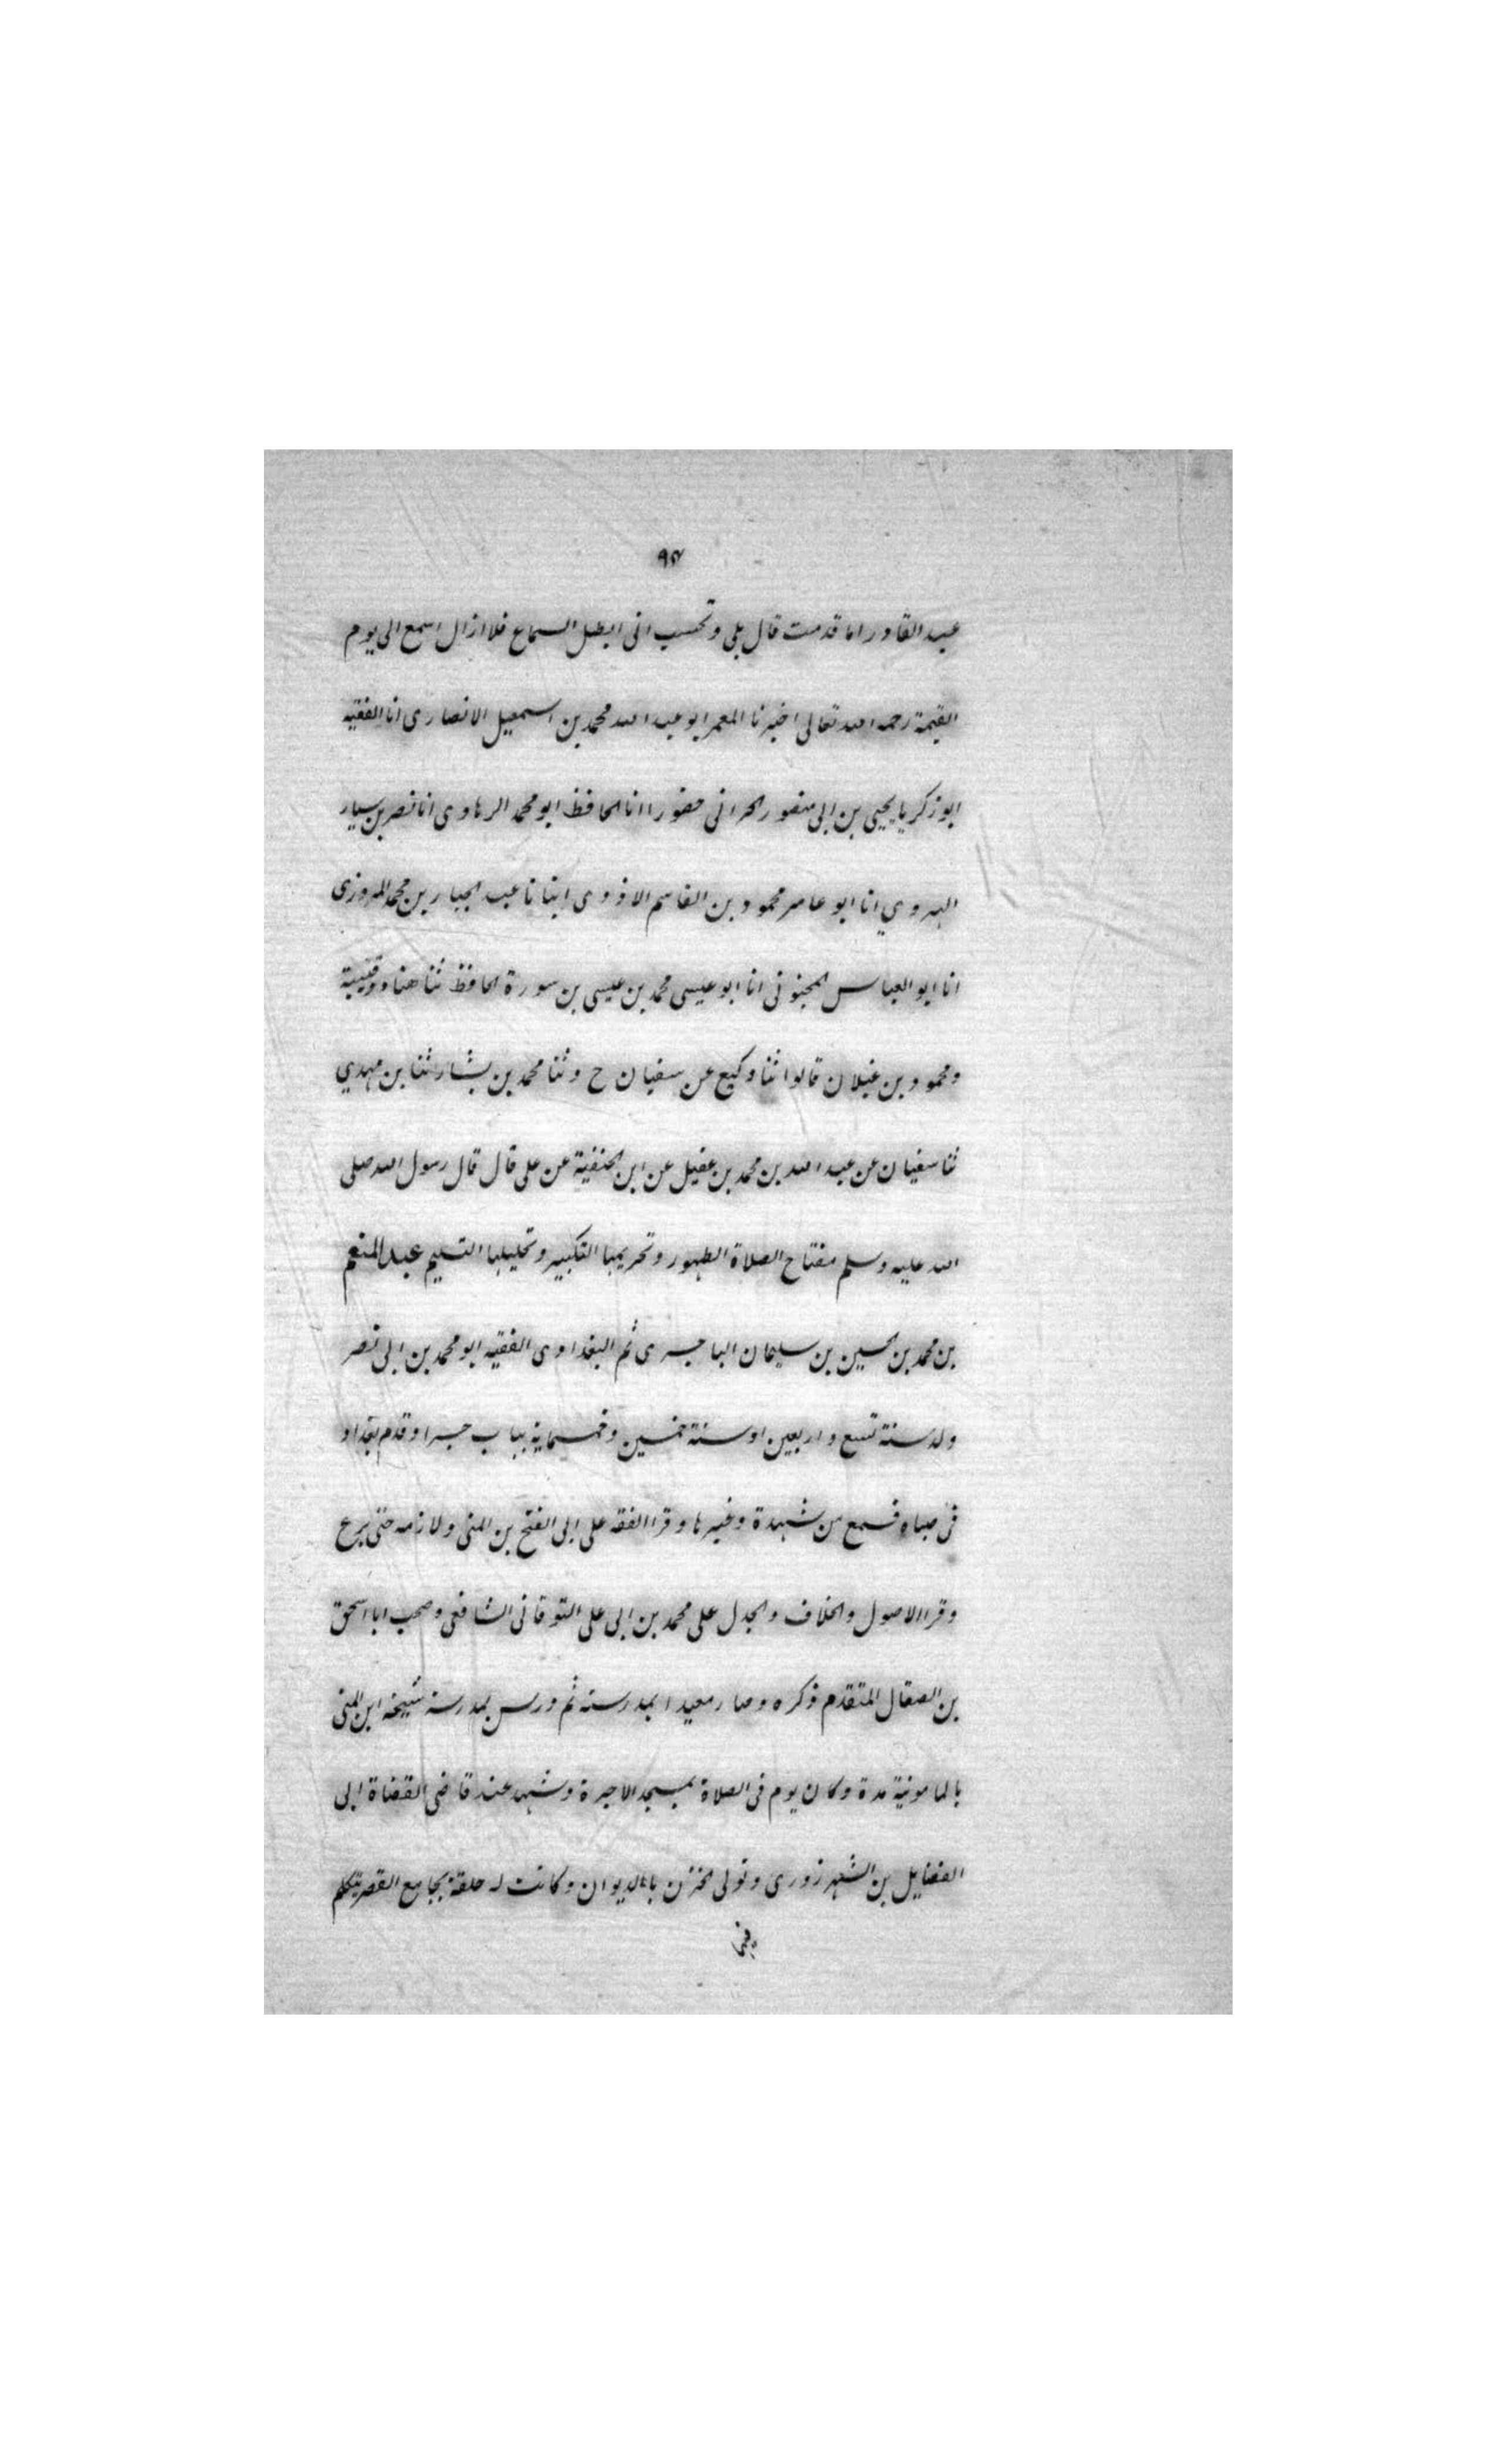 ٩٣
عبد القادر اما قدمت قال بلى وتحسب انى ابطل السماع فلا ازال اسمع الى يوم
القيمة رحمه الله تعالى اخبرنا المعمر ابو عبد الله محمد بن اسمعيل الانصارى انا الفقيه
ابو زكريا يحيى بن ابى منصور الحرانى حضورا انا الحافظ ابو محمد الرهاوى انا نصر بن سيار
الهروي انا ابو عامر محمود بن القاسم الازدى ابنانا عبد الجبار بن محمد المروزى
انا ابو العباس المحبوبى انا ابو عيسى محمد بن عيسى بن سورة الحافظ ثنا هناد وقتيبة
ومحمود بن غيلان قالوا ثنا وكيع عن سفيان ح وثنا محمد بن بشار ثنا بن مهدي
ثنا سفيان عن عبد الله بن محمد بن عقيل عن ابن الحنفية عن على قال قال رسول الله صلى
الله عليه وسلم مفتاح الصلاة الطهور وتحريمها التكبير وتحليلها التسليم عبد المنعم
بن محمد بن الحسين بن سليمان الباجسرى ثم البغدادى الفقيه ابو محمد بن ابى نصر
ولد سنة تسع واربعين او سنة خمسين وخمسماية بباب جسرا وقدم بغداد
فى صباه فسمع من شهدة وغيرها وقرا الفقه على ابى الفتح بن المنى ولازمه حتى برع
وقرا الاصول والخلاف والجدل على محمد بن ابى على التوقانى الشافعى وصحب ابا اسحق
بن الصقال المتقدم ذكره وصار معيدا بمدرسته ثم درس بمدرسة شيخه ابن المنى
بالمامونية مدة وكان يوم فى الصلاة بمسجد الاجرة وشهد عند قاضى القضاة ابى
الفضايل بن الشهرزورى وتولى الخزن بالديوان وكانت له حلقة بجامع القصر يتكلم